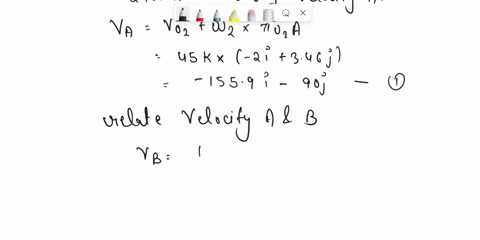 V_A = V_O2 + ω2 × r_O2A
= 45K × (-2i + 3.46j)
= -155.9i - 90j — ①
relate Velocity A & B
V_B =